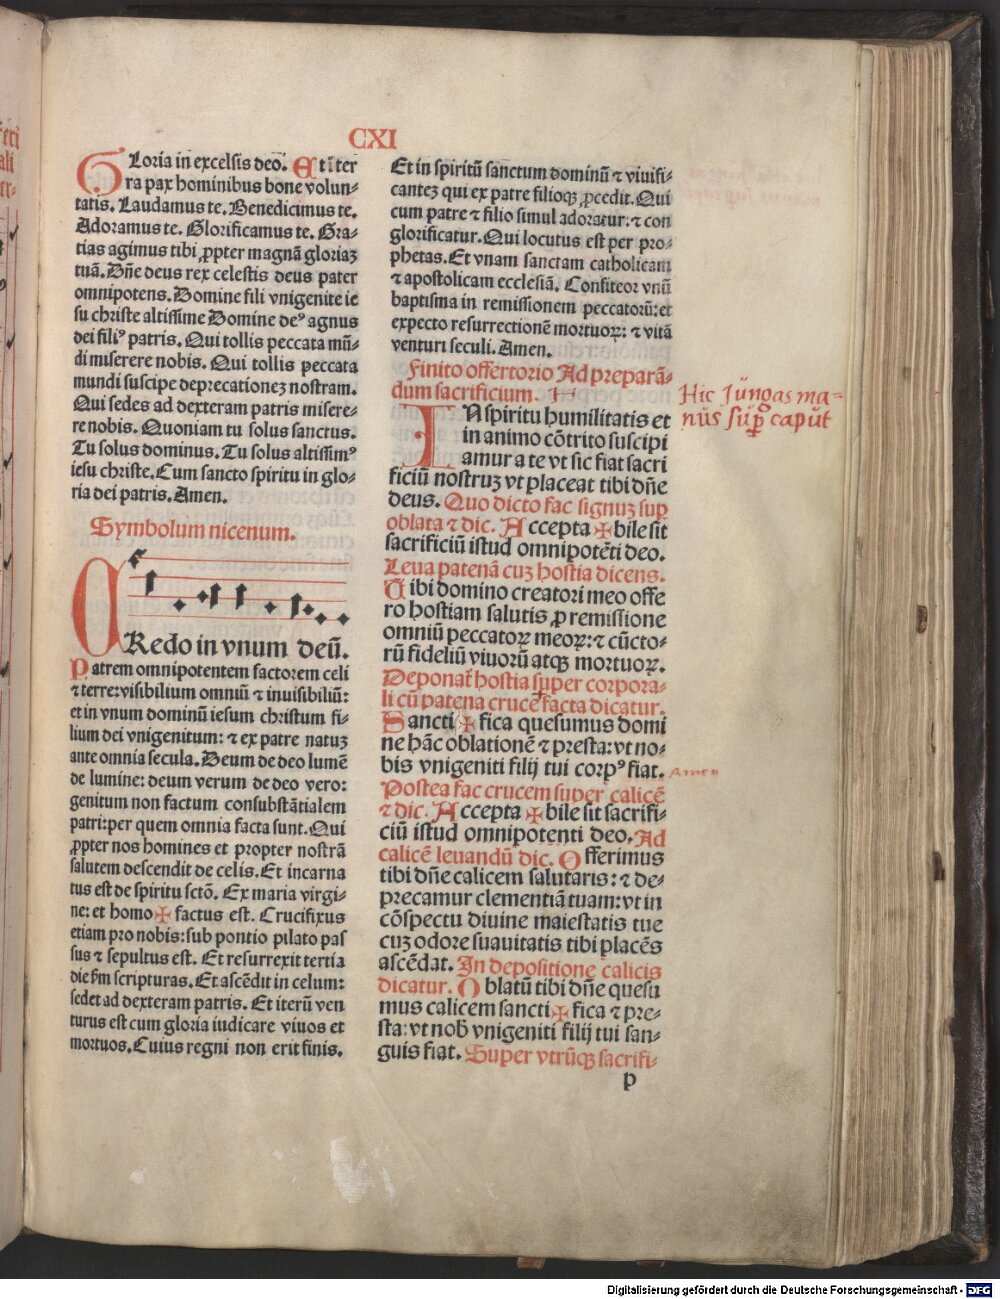 CXI
Gloria in excelsis deo. Et ī ter
ra pax hominibus bone volun-
tatis. Laudamus te. Benedicimus te.
Adoramus te. Glorificamus te. Gra-
tias agimus tibi ꝓpter magnā gloriaꝫ
tuā. Dn̄e deus rex celestis deus pater
omnipotens. Domine fili vnigenite ie
su christe altissime Domine deꝰ agnus
dei filiꝰ patris. Qui tollis peccata mū-
di miserere nobis. Qui tollis peccata
mundi suscipe deprecationeꝫ nostram.
Qui sedes ad dexteram patris misere-
re nobis. Quoniam tu solus sanctus.
Tu solus dominus. Tu solus altissimꝰ
iesu christe. Cum sancto spiritu in glo-
ria dei patris. Amen.
Symbolum nicenum.
CRedo in vnum deū.
Patrem omnipotentem factorem celi
⁊ terre: visibilium omniū ⁊ inuisibiliū:
et in vnum dominū iesum christum fi-
lium dei vnigenitum: ⁊ ex patre natuꝫ
ante omnia secula. Deum de deo lumē
de lumine: deum verum de deo vero:
genitum non factum consubstātialem
patri: per quem omnia facta sunt. Qui
ꝓpter nos homines et propter nostrā
salutem descendit de celis. Et incarna
tus est de spiritu sctō. Ex maria virgi-
ne: et homo ✠ factus est. Crucifixus
etiam pro nobis: sub pontio pilato pas
sus ⁊ sepultus est. Et resurrexit tertia
die ẜm scripturas. Et ascēdit in celum:
sedet ad dexteram patris. Et iterū ven
turus est cum gloria iudicare viuos et
mortuos. Cuius regni non erit finis.
Et in spiritū sanctum dominū ⁊ viuifi-
canteꝫ qui ex patre filioqꝫ ꝓcedit. Qui
cum patre ⁊ filio simul adoratur: ⁊ con
glorificatur. Qui locutus est per pro-
phetas. Et vnam sanctam catholicam
⁊ apostolicam ecclesiā. Confiteor vnū
baptisma in remissionem peccatorū: et
expecto resurrectionē mortuoꝝ: ⁊ vitā
venturi seculi. Amen.
Finito offertorio Ad preparā-
dum sacrificium.
Hic Jūngas ma=
nūs suꝑ caput
IN spiritu humilitatis et
in animo cōtrito suscipi
amur a te vt sic fiat sacri
ficiū nostruꝫ vt placeat tibi dn̄e
deus. Quo dicto fac signuꝫ suꝑ
oblata ⁊ dic. Accepta ✠ bile sit
sacrificiū istud omnipotēti deo.
Leua patenā cuꝫ hostia dicens.
Tibi domino creatori meo offe
ro hostiam salutis ꝓ remissione
omniū peccatoꝝ meoꝝ: ⁊ cūcto-
rū fideliū viuorū atqꝫ mortuoꝝ.
Deponat̄ hostia super corpora-
li cū patena cruce facta dicatur.
Sancti ✠ fica quesumus domi
ne hāc oblationē ⁊ presta: vt no-
bis vnigeniti filij tui corpꝰ fiat. Amen
Postea fac crucem super calicē
⁊ dic. Accepta ✠ bile sit sacrifi-
ciū istud omnipotenti deo. Ad
calicē leuandū dic. Offerimus
tibi dn̄e calicem salutaris: ⁊ de-
precamur clementiā tuam: vt in
cōspectu diuine maiestatis tue
cuꝫ odore suauitatis tibi placēs
ascēdat. In depositione calicis
dicatur. Oblatū tibi dn̄e quesu
mus calicem sancti ✠ fica ⁊ pre-
sta: vt nob̄ vnigeniti filij tui san-
guis fiat. Super vtrūqꝫ sacrifi-
p
Digitalisierung gefördert durch die Deutsche Forschungsgemeinschaft - DFG